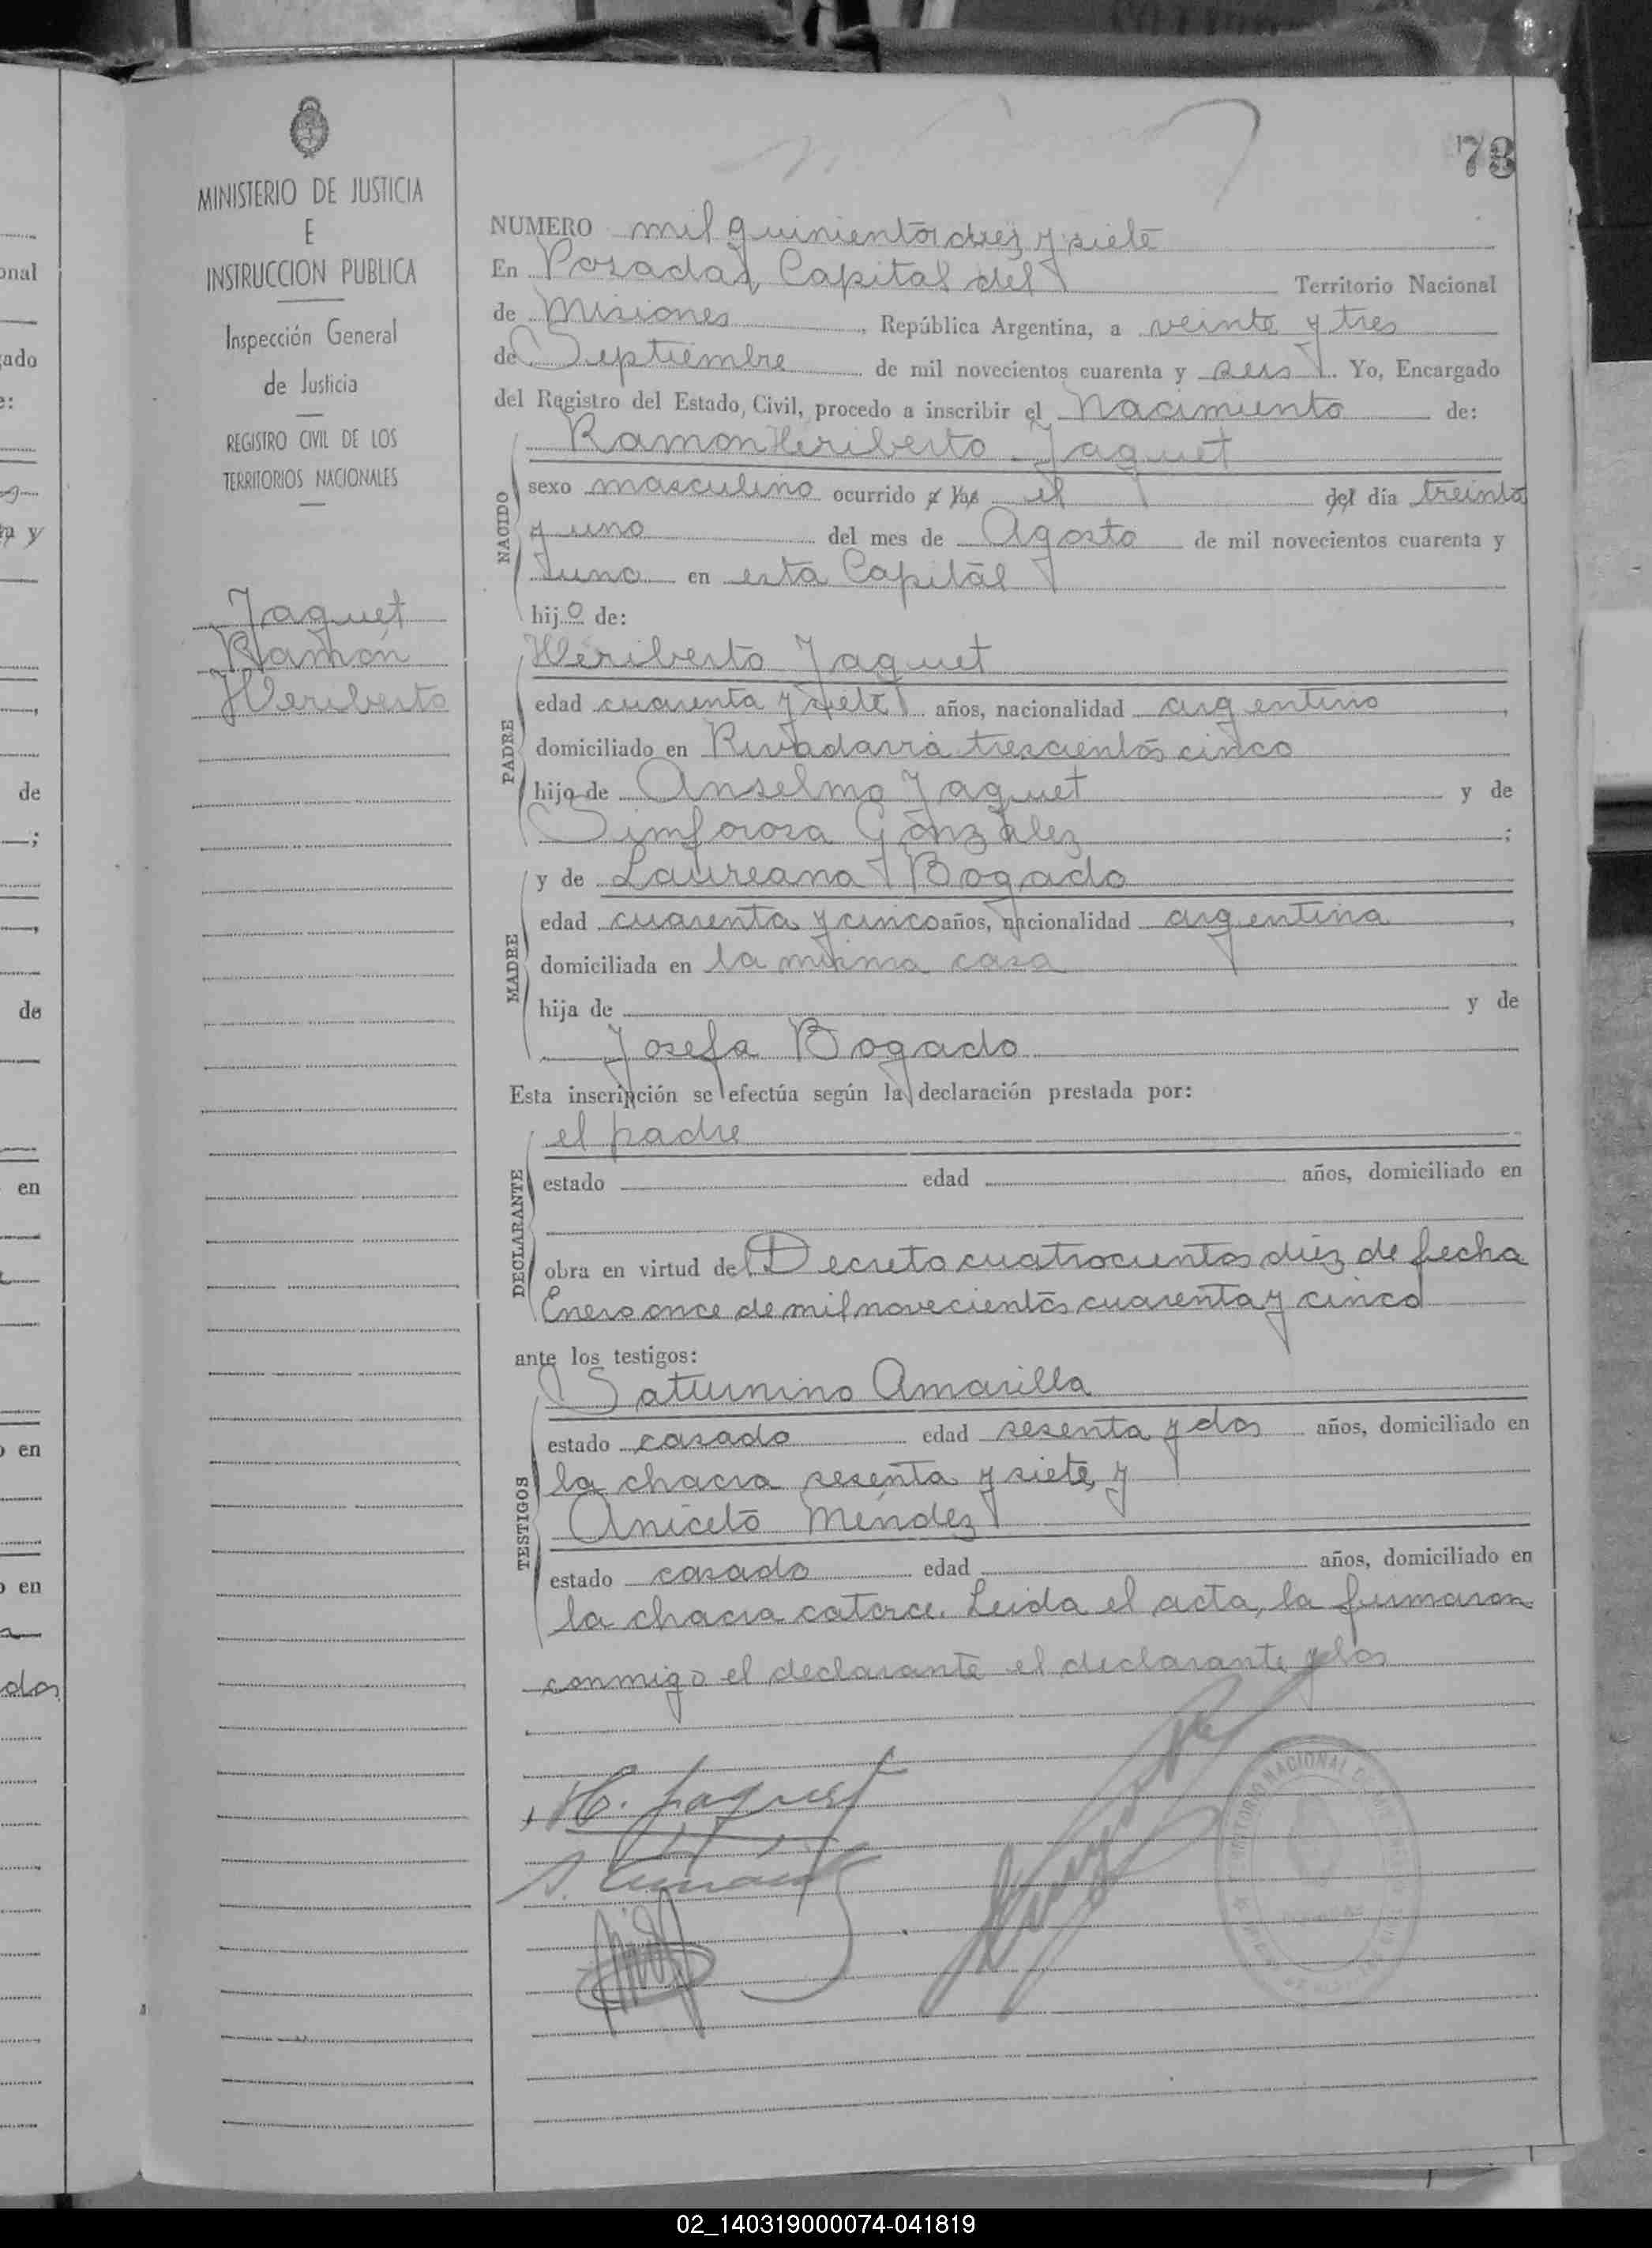 78
MINISTERIO DE JUSTICIA
E
INSTRUCCION PUBLICA
Inspección General
de Justicia
REGISTRO CIVIL DE LOS
TERRITORIOS NACIONALES
Jaquet
Ramón
Heriberto
NUMERO mil quinientos diez y siete
En Posadas, Capital del Territorio Nacional
de Misiones, República Argentina, a veinte y tres
de Septiembre de mil novecientos cuarenta y seis. Yo, Encargado
del Registro del Estado Civil, procedo a inscribir el Nacimiento de:
Ramon Heriberto Jaquet
NACIDO
sexo masculino ocurrido a las el del día treinta
y uno del mes de Agosto de mil novecientos cuarenta y
uno en esta Capital
hijo de:
Heriberto Jaquet
PADRE
edad cuarenta y siete años, nacionalidad argentino,
domiciliado en Rivadavia trescientos cinco
hijo de Anselmo Jaquet y de
Simforosa González;
y de Laureana Bogado
MADRE
edad cuarenta y cinco años, nacionalidad argentina,
domiciliada en la misma casa
hija de y de
Josefa Bogado
Esta inscripción se efectúa según la declaración prestada por:
el padre
DECLARANTE
estado edad años, domiciliado en
obra en virtud del Decreto cuatrocientos diez de fecha
Enero once de mil novecientos cuarenta y cinco
ante los testigos:
Saturnino Amarilla
TESTIGOS
estado casado edad sesenta y dos años, domiciliado en
la chacra sesenta y siete, y
Aniceto Méndez
estado casado edad años, domiciliado en
la chacra catorce. Leida el acta, la firmaron
conmigo el declarante el declarante y los
H. Jaquet
02_140319000074-041819